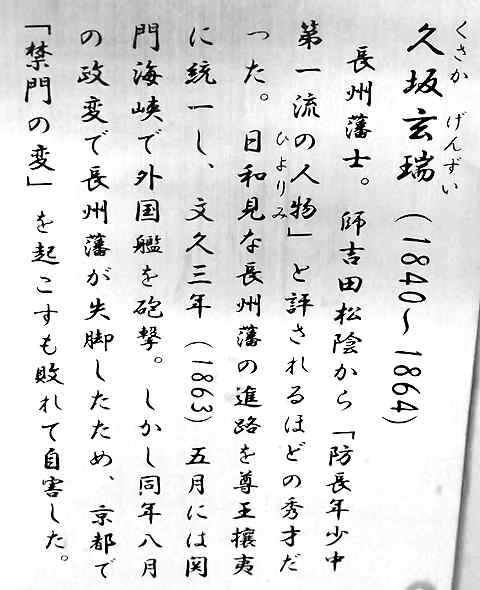 くさか げんずい
久坂玄瑞(1840～1864)
長州藩士。師吉田松陰から「防長年少中
第一流の人物」と評されるほどの秀才だ
ひよりみ
った。日和見な長州藩の進路を尊王攘夷
に統一し、文久三年(1863)五月には関
門海峡で外国艦を砲撃。しかし同年八月
の政変で長州藩が失脚したため、京都で
「禁門の変」を起こすも敗れて自害した。